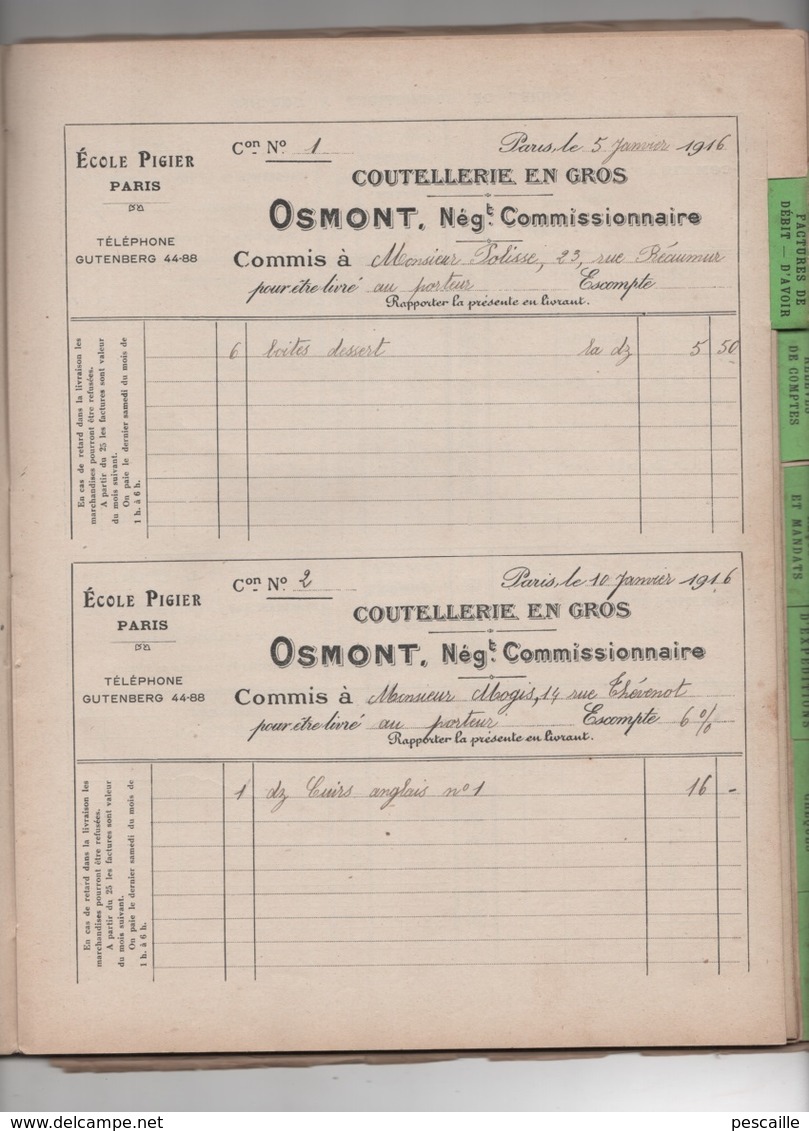 ÉCOLE PIGIER
PARIS
TÉLÉPHONE
GUTENBERG 44-88
Con No 1 Paris, le 5 Janvier 1916
COUTELLERIE EN GROS
OSMONT, Négt. Commissionnaire
Commis à Monsieur Polisse, 23, rue Réaumur
pour être livré au porteur Escompte
Rapporter la présente en livrant.
En cas de retard dans la livraison les
marchandises pourront être refusées.
A partir du 25 les factures sont valeur
du mois suivant.
On paie le dernier samedi du mois de
1 h. à 6 h.
6 boites dessert la dz 5 50
ÉCOLE PIGIER
PARIS
TÉLÉPHONE
GUTENBERG 44-88
Con No 2 Paris, le 10 Janvier 1916
COUTELLERIE EN GROS
OSMONT, Négt. Commissionnaire
Commis à Monsieur Mogis, 14 rue Thévenot
pour être livré au porteur Escompte 6%
Rapporter la présente en livrant.
En cas de retard dans la livraison les
marchandises pourront être refusées.
A partir du 25 les factures sont valeur
du mois suivant.
On paie le dernier samedi du mois de
1 h. à 6 h.
1 dz Cuirs anglais no 1 16 -
FACTURES DE
DÉBIT — D'AVOIR
RELEVÉS
DE COMPTES
ET MANDATS
D'EXPÉDITIONS
delcampe.net
pescaille